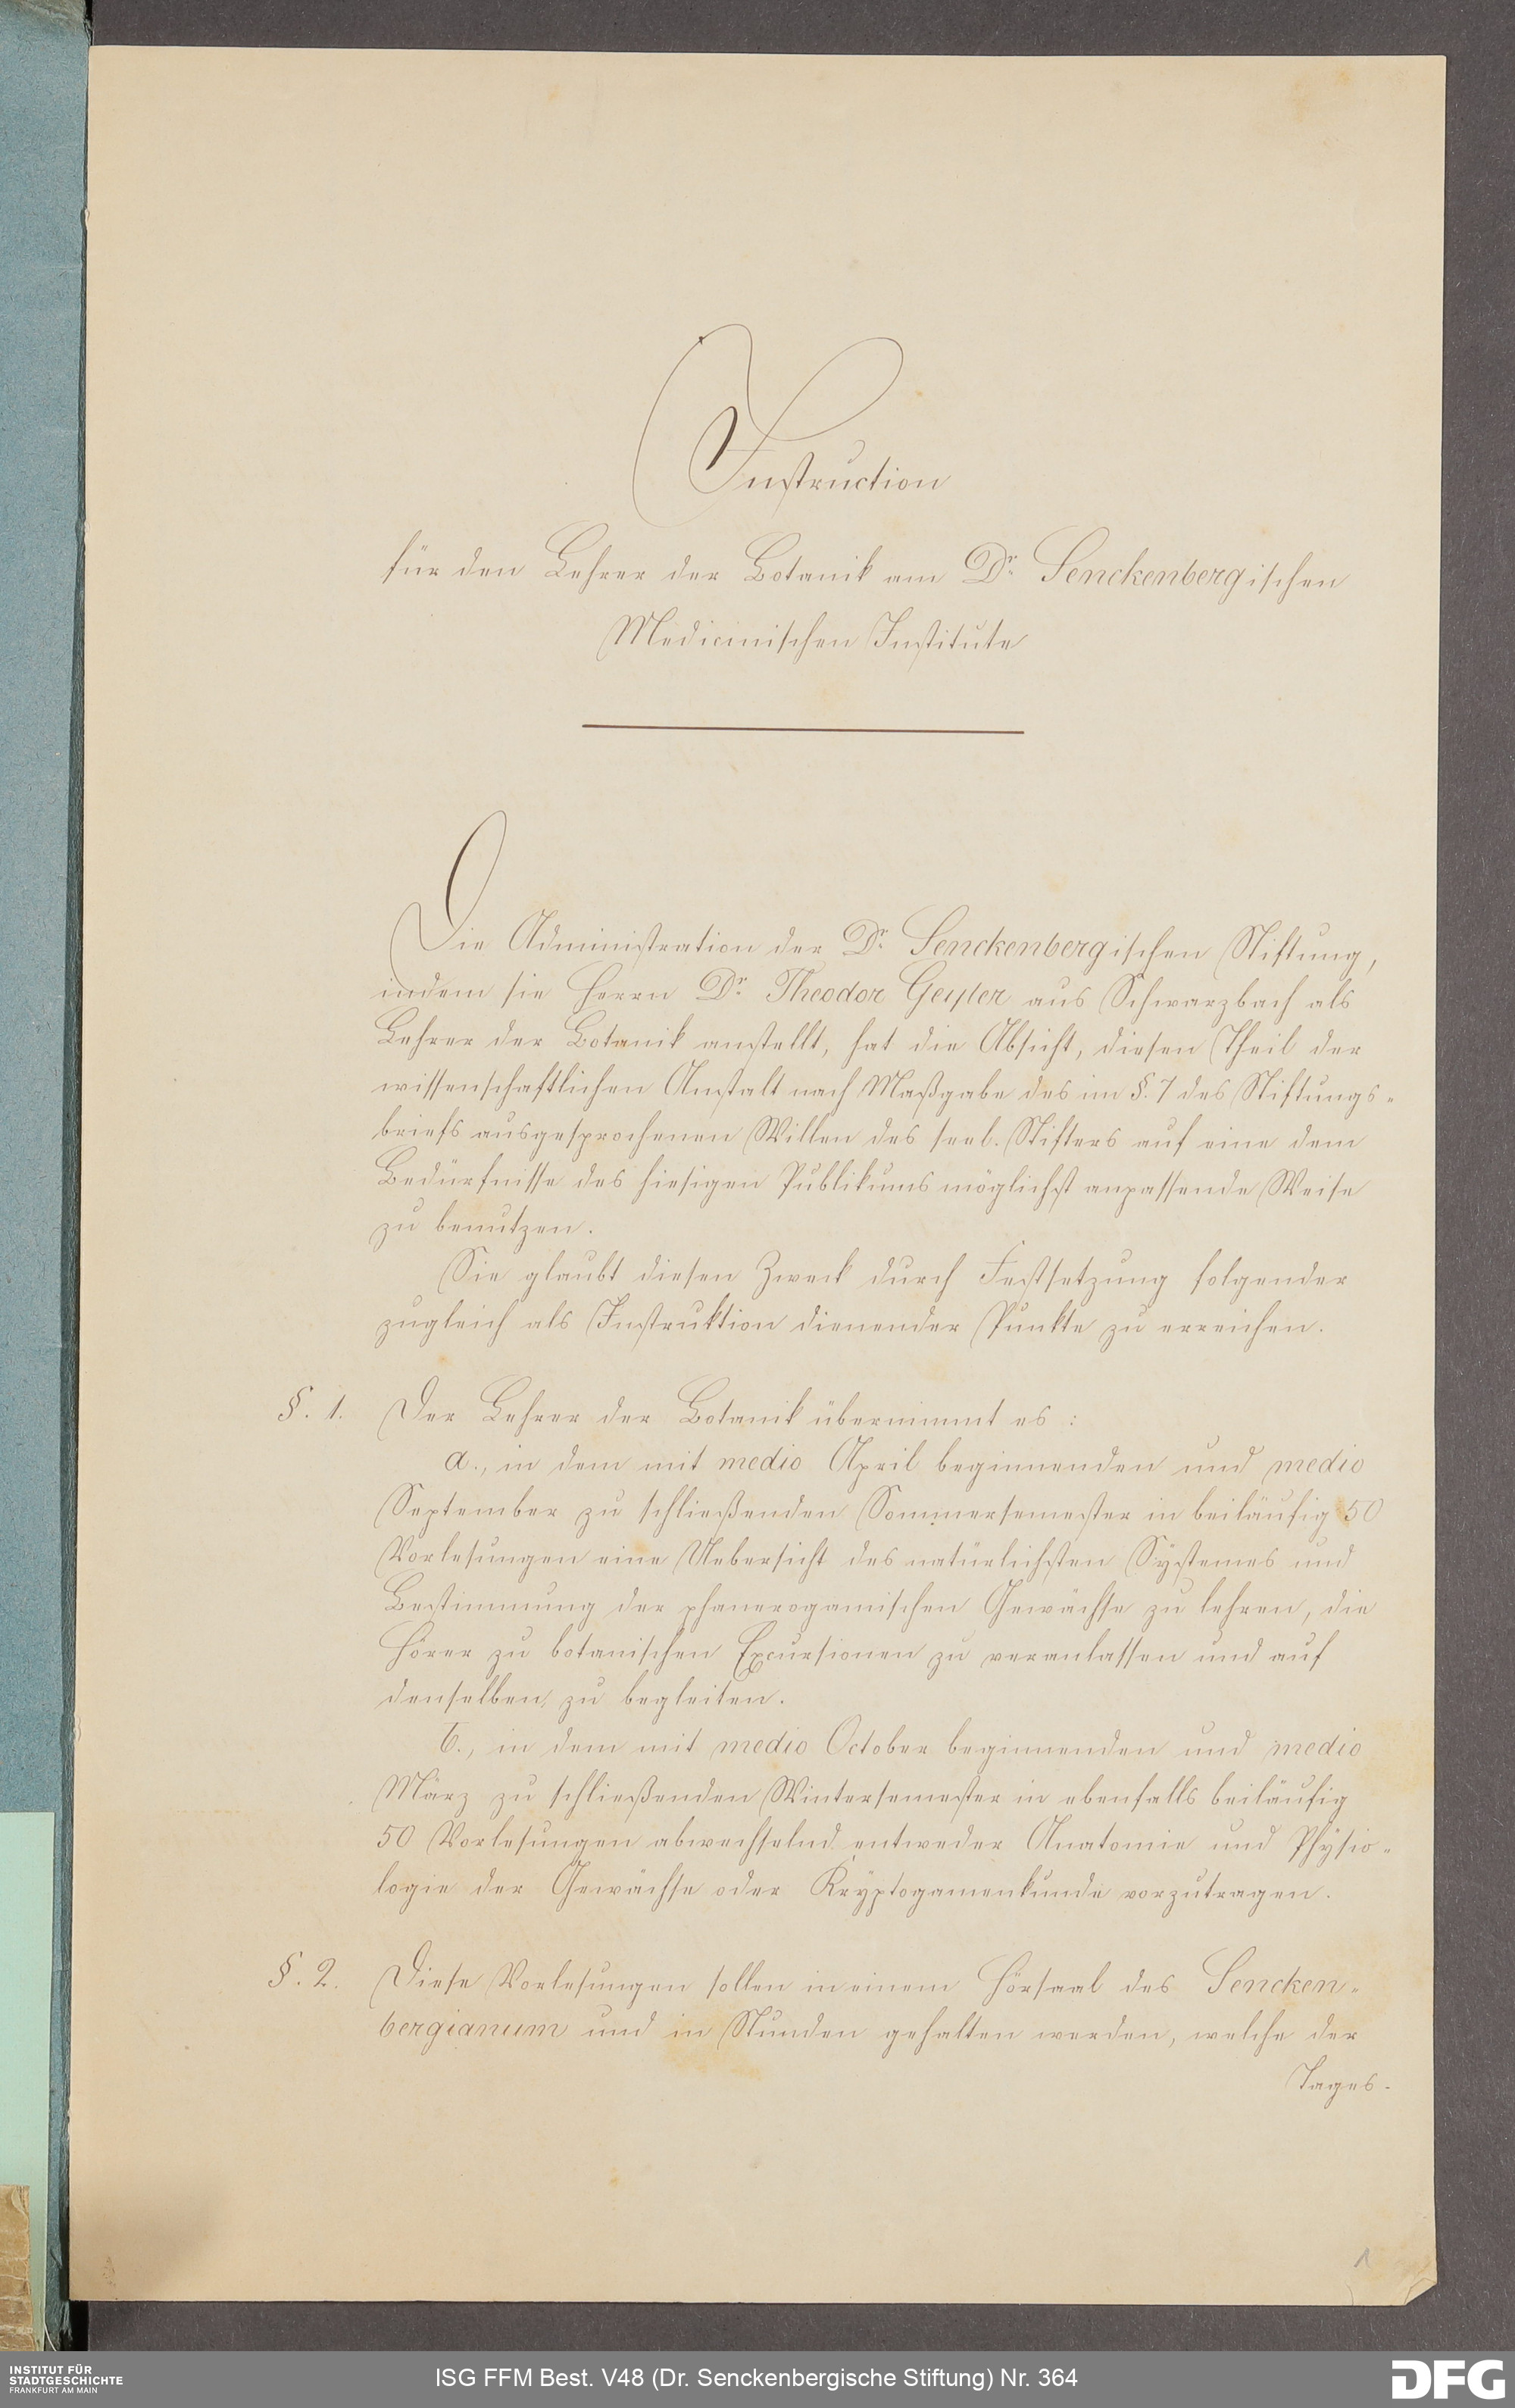 Instruction
für den Lehrer der Botanik am Dr. Senckenbergischen
Medicinischen Institute
Die Administration der Dr. Senckenbergischen Stiftung,
indem sie Herrn Dr. Theodor Geyler aus Schwarzbach als
Lehrer der Botanik anstellt, hat die Absicht, diesen Theil der
wissenschaftlichen Anstalt nach Maßgabe des im §. 7 des Stiftungs-
briefs ausgesprochenen Willen des seel. Stifters auf eine dem
Bedürfnisse des hiesigen Publikums möglichst anpassende Weise
zu benutzen.
Sie glaubt diesen Zweck durch Festsetzung folgender
zugleich als Instruktion dienender Punkte zu erreichen.
§. 1. Der Lehrer der Botanik übernimmt es :
a., in dem mit medio April beginnenden und medio
September zu schließenden Sommersemester in beiläufig 50
Vorlesungen eine Uebersicht des natürlichsten Systemes und
Bestimmung der phanerogamischen Gewächse zu lehren, die
Hörer zu botanischen Excursionen zu veranlassen und auf
denselben zu begleiten.
b., in dem mit medio October beginnenden und medio
März zu schließenden Wintersemester in ebenfalls beiläufig
50 Vorlesungen abwechselnd entweder Anatomie und Physio-
logie der Gewächse oder Kryptogamenkunde vorzutragen.
§. 2. Diese Vorlesungen sollen in einem Hörsaal des Sencken-
bergianum und in Stunden gehalten werden, welche der
Tages-
1
INSTITUT FÜR
STADTGESCHICHTE
FRANKFURT AM MAIN
ISG FFM Best. V48 (Dr. Senckenbergische Stiftung) Nr. 364
DFG